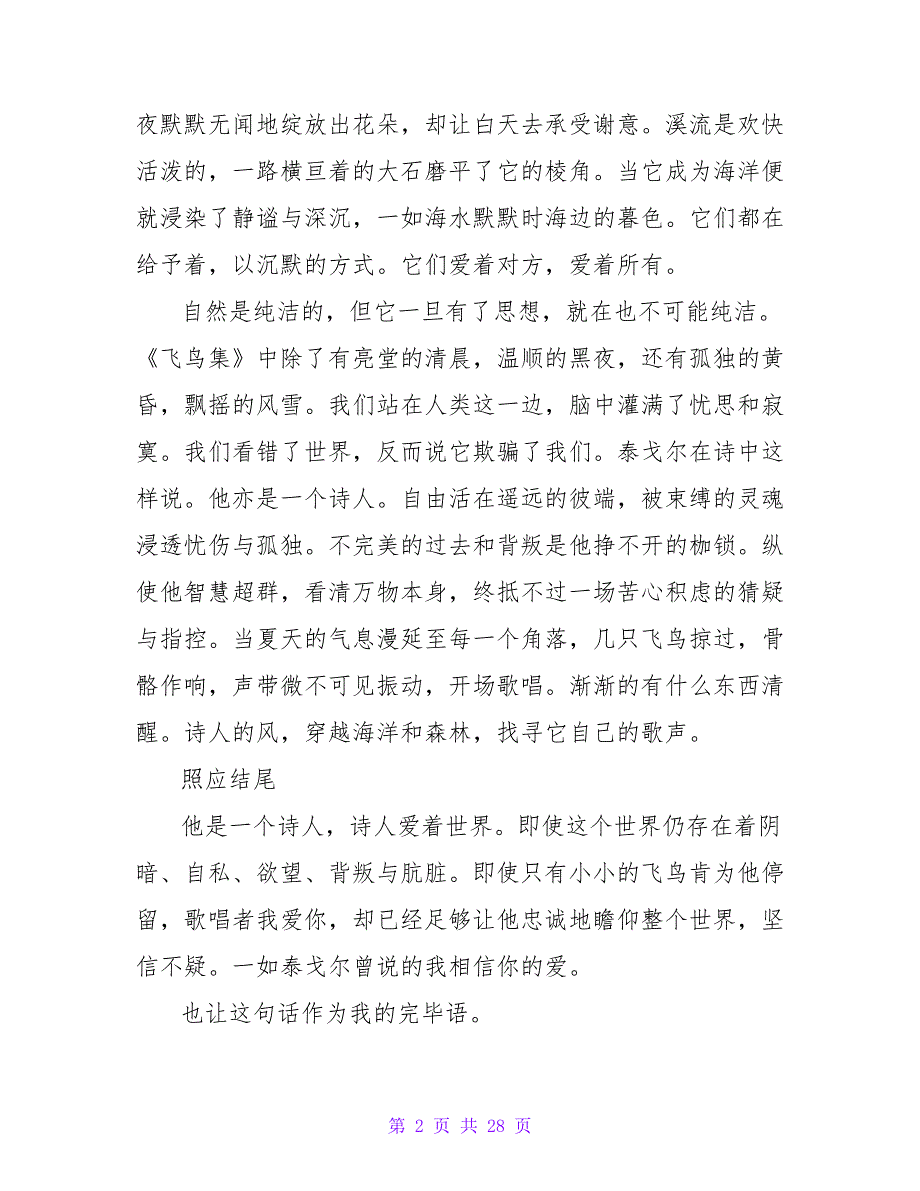 夜默默无闻地绽放出花朵，却让白天去承受谢意。溪流是欢快
活泼的，一路横亘着的大石磨平了它的棱角。当它成为海洋便
就浸染了静谧与深沉，一如海水默默时海边的暮色。它们都在
给予着，以沉默的方式。它们爱着对方，爱着所有。
自然是纯洁的，但它一旦有了思想，就在也不可能纯洁。
《飞鸟集》中除了有亮堂的清晨，温顺的黑夜，还有孤独的黄
昏，飘摇的风雪。我们站在人类这一边，脑中灌满了忧思和寂
寞。我们看错了世界，反而说它欺骗了我们。泰戈尔在诗中这
样说。他亦是一个诗人。自由活在遥远的彼端，被束缚的灵魂
浸透忧伤与孤独。不完美的过去和背叛是他挣不开的枷锁。纵
使他智慧超群，看清万物本身，终抵不过一场苦心积虑的猜疑
与指控。当夏天的气息漫延至每一个角落，几只飞鸟掠过，骨
骼作响，声带微不可见振动，开场歌唱。渐渐的有什么东西清
醒。诗人的风，穿越海洋和森林，找寻它自己的歌声。
照应结尾
他是一个诗人，诗人爱着世界。即使这个世界仍存在着阴
暗、自私、欲望、背叛与肮脏。即使只有小小的飞鸟肯为他停
留，歌唱者我爱你，却已经足够让他忠诚地瞻仰整个世界，坚
信不疑。一如泰戈尔曾说的我相信你的爱。
也让这句话作为我的完毕语。
第 2 页 共 28 页